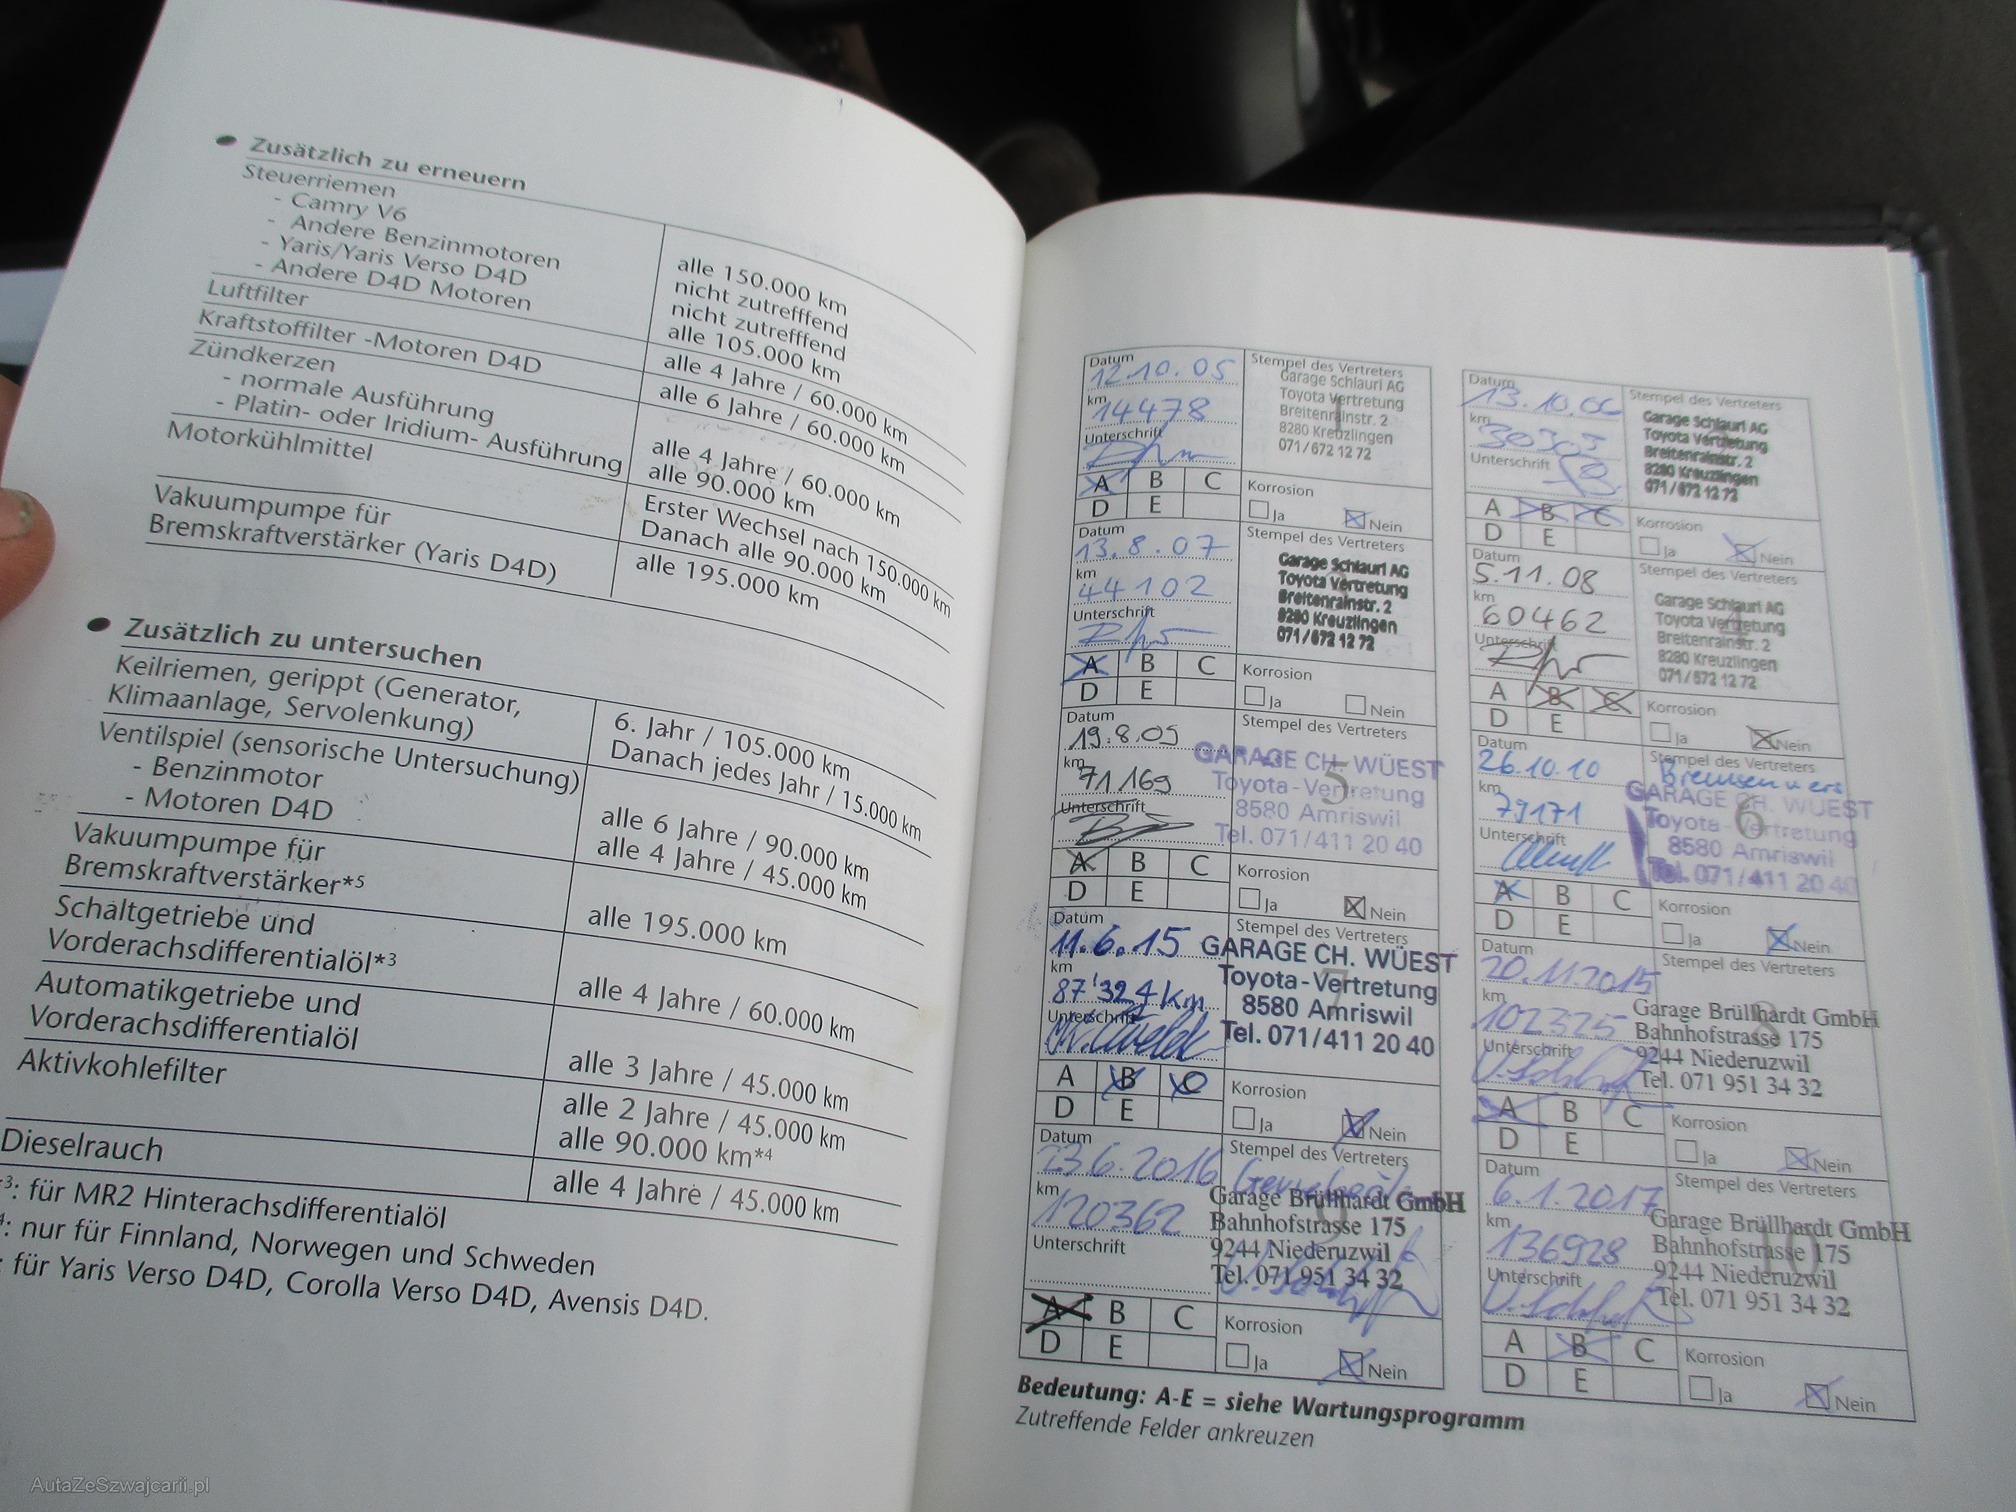 Zusätzlich zu erneuern
Steuerriemen
- Camry V6 alle 150.000 km
- Andere Benzinmotoren nicht zutrefffend
- Yaris/Yaris Verso D4D nicht zutrefffend
- Andere D4D Motoren alle 105.000 km
Luftfilter alle 4 Jahre / 60.000 km
Kraftstoffilter -Motoren D4D alle 6 Jahre / 60.000 km
Zündkerzen
- normale Ausführung alle 4 Jahre / 60.000 km
- Platin- oder Iridium- Ausführung alle 90.000 km
Motorkühlmittel Erster Wechsel nach 150.000 km
Danach alle 90.000 km
Vakuumpumpe für
Bremskraftverstärker (Yaris D4D) alle 195.000 km
Zusätzlich zu untersuchen
Keilriemen, gerippt (Generator, 6. Jahr / 105.000 km
Klimaanlage, Servolenkung) Danach jedes Jahr / 15.000 km
Ventilspiel (sensorische Untersuchung)
- Benzinmotor alle 6 Jahre / 90.000 km
- Motoren D4D alle 4 Jahre / 45.000 km
Vakuumpumpe für
Bremskraftverstärker*5 alle 195.000 km
Schaltgetriebe und
Vorderachsdifferentialöl*3 alle 4 Jahre / 60.000 km
Automatikgetriebe und
Vorderachsdifferentialöl alle 3 Jahre / 45.000 km
Aktivkohlefilter alle 2 Jahre / 45.000 km
alle 90.000 km*4
Dieselrauch alle 4 Jahre / 45.000 km
3: für MR2 Hinterachsdifferentialöl
: nur für Finnland, Norwegen und Schweden
: für Yaris Verso D4D, Corolla Verso D4D, Avensis D4D.
Datum
12.10.05
km
14478
Unterschrift
Stempel des Vertreters
Garage Schlauri AG
Toyota Vertretung
Breitenrainstr. 2
8280 Kreuzlingen
071/672 12 72
A B C
D E
Korrosion
Ja Nein
Datum
13.10.06
km
Unterschrift
Stempel des Vertreters
Garage Schlauri AG
Toyota Vertretung
Breitenrainstr. 2
8280 Kreuzlingen
071/672 12 72
A B C
D E
Korrosion
Ja Nein
Datum
13.8.07
km
44102
Unterschrift
Stempel des Vertreters
Garage Schlauri AG
Toyota Vertretung
Breitenrainstr. 2
8280 Kreuzlingen
071/672 12 72
A B C
D E
Korrosion
Ja Nein
Datum
5.11.08
km
60462
Unterschrift
Stempel des Vertreters
Garage Schlauri AG
Toyota Vertretung
Breitenrainstr. 2
8280 Kreuzlingen
071/672 12 72
A B C
D E
Korrosion
Ja Nein
Datum
19.8.09
km
71169
Unterschrift
Stempel des Vertreters
5
GARAGE CH. WÜEST
Toyota-Vertretung
8580 Amriswil
Tel. 071/411 20 40
A B C
D E
Korrosion
Ja Nein
Datum
26.10.10
km
79171
Unterschrift
Stempel des Vertreters
6
GARAGE CH. WÜEST
Toyota-Vertretung
8580 Amriswil
Tel. 071/411 20 40
A B C
D E
Korrosion
Ja Nein
Datum
11.6.15
km
87'324 Km
Unterschrift
Stempel des Vertreters
7
GARAGE CH. WÜEST
Toyota-Vertretung
8580 Amriswil
Tel. 071/411 20 40
A B C
D E
Korrosion
Ja Nein
Datum
20.11.2015
km
102325
Unterschrift
Stempel des Vertreters
8
Garage Brüllhardt GmbH
Bahnhofstrasse 175
9244 Niederuzwil
Tel. 071 951 34 32
A B C
D E
Korrosion
Ja Nein
Datum
23.6.2016
km
120362
Unterschrift
Stempel des Vertreters
9
Garage Brüllhardt GmbH
Bahnhofstrasse 175
9244 Niederuzwil
Tel. 071 951 34 32
A B C
D E
Korrosion
Ja Nein
Datum
6.1.2017
km
136928
Unterschrift
Stempel des Vertreters
10
Garage Brüllhardt GmbH
Bahnhofstrasse 175
9244 Niederuzwil
Tel. 071 951 34 32
A B C
D E
Korrosion
Ja Nein
Bedeutung: A-E = siehe Wartungsprogramm
Zutreffende Felder ankreuzen
AutaZeSzwajcarii.pl